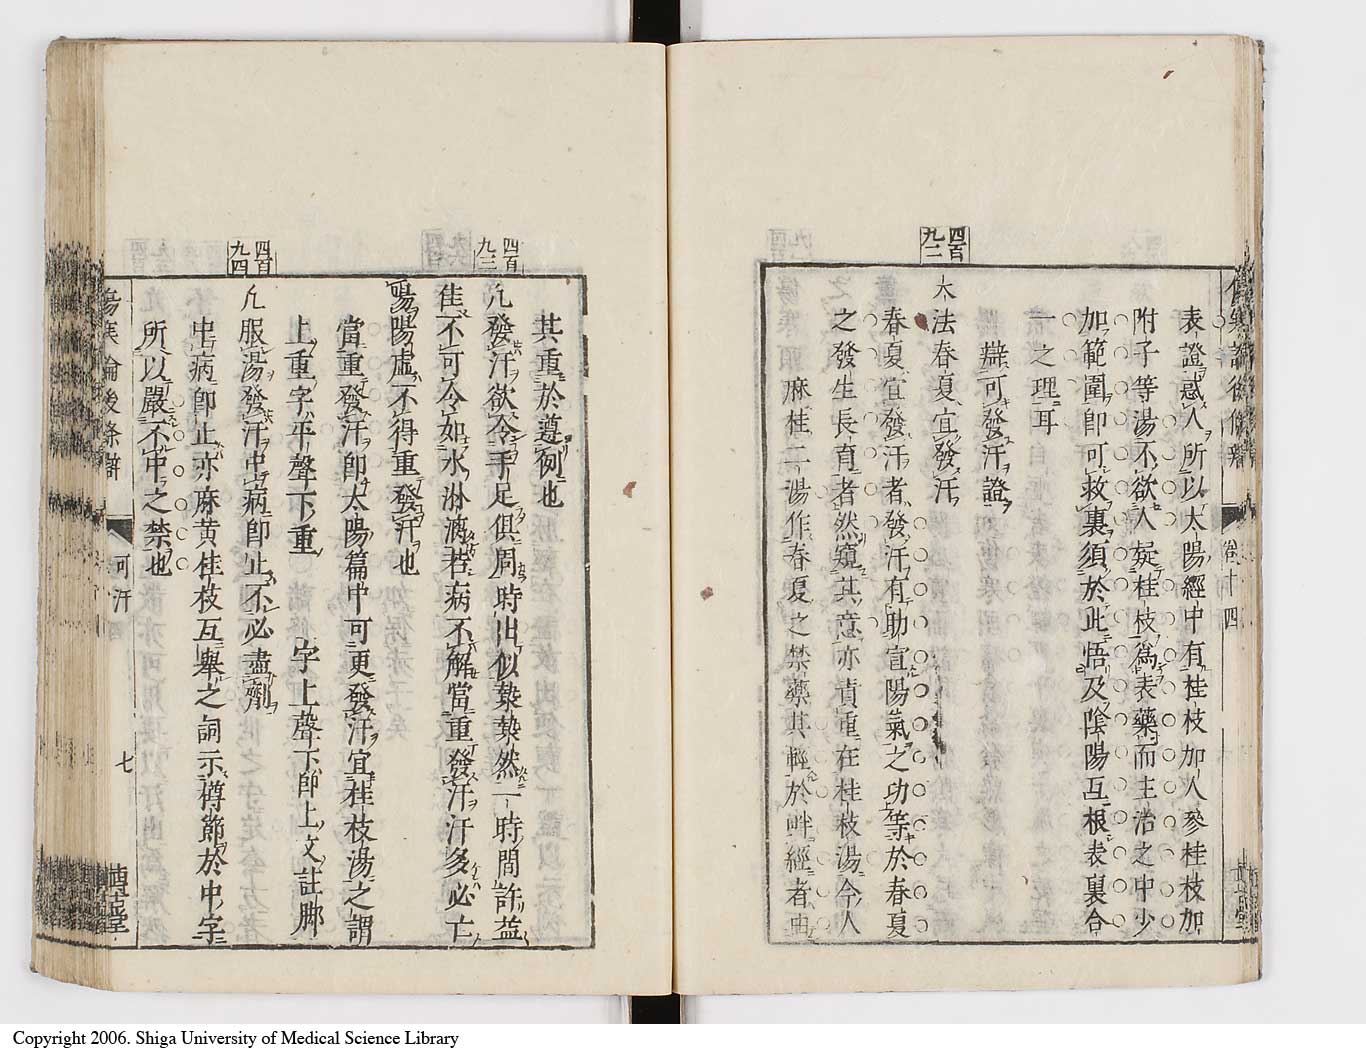 傷寒論後條辨 卷十四
表證惑人所以太陽經中有桂枝加人參桂枝加
附子等湯不欲人疑桂枝爲表藥而主治之中少
加範圍即可救裏須於此悟及陰陽互根表裏合
一之理耳
辨可發汗證
四百九二
大法春夏宜發汗
春夏宜發汗者發汗有助宣陽氣之功等於春夏
之發生長育者然窺其意亦責重在桂枝湯令人
麻桂二湯作春夏之禁藥其輕於畔經者由
其重於遵例也
四百九三
凡發汗欲令手足俱周時出似漐漐然一時間許益
佳不可令如水淋漓若病不解當重發汗汗多必亡
陽陽虛不得重發汗也
當重發汗即太陽篇中可更發汗宜桂枝湯之謂
上重字平聲下重 字上聲下即上文註脚
四百九四
凡服湯發汗中病即止不必盡劑
中病即止亦麻黄桂枝互舉之詞示撙節於中字
所以嚴不中之禁也
傷寒論後條辨 可汗 七 博古堂
Copyright 2006. Shiga University of Medical Science Library